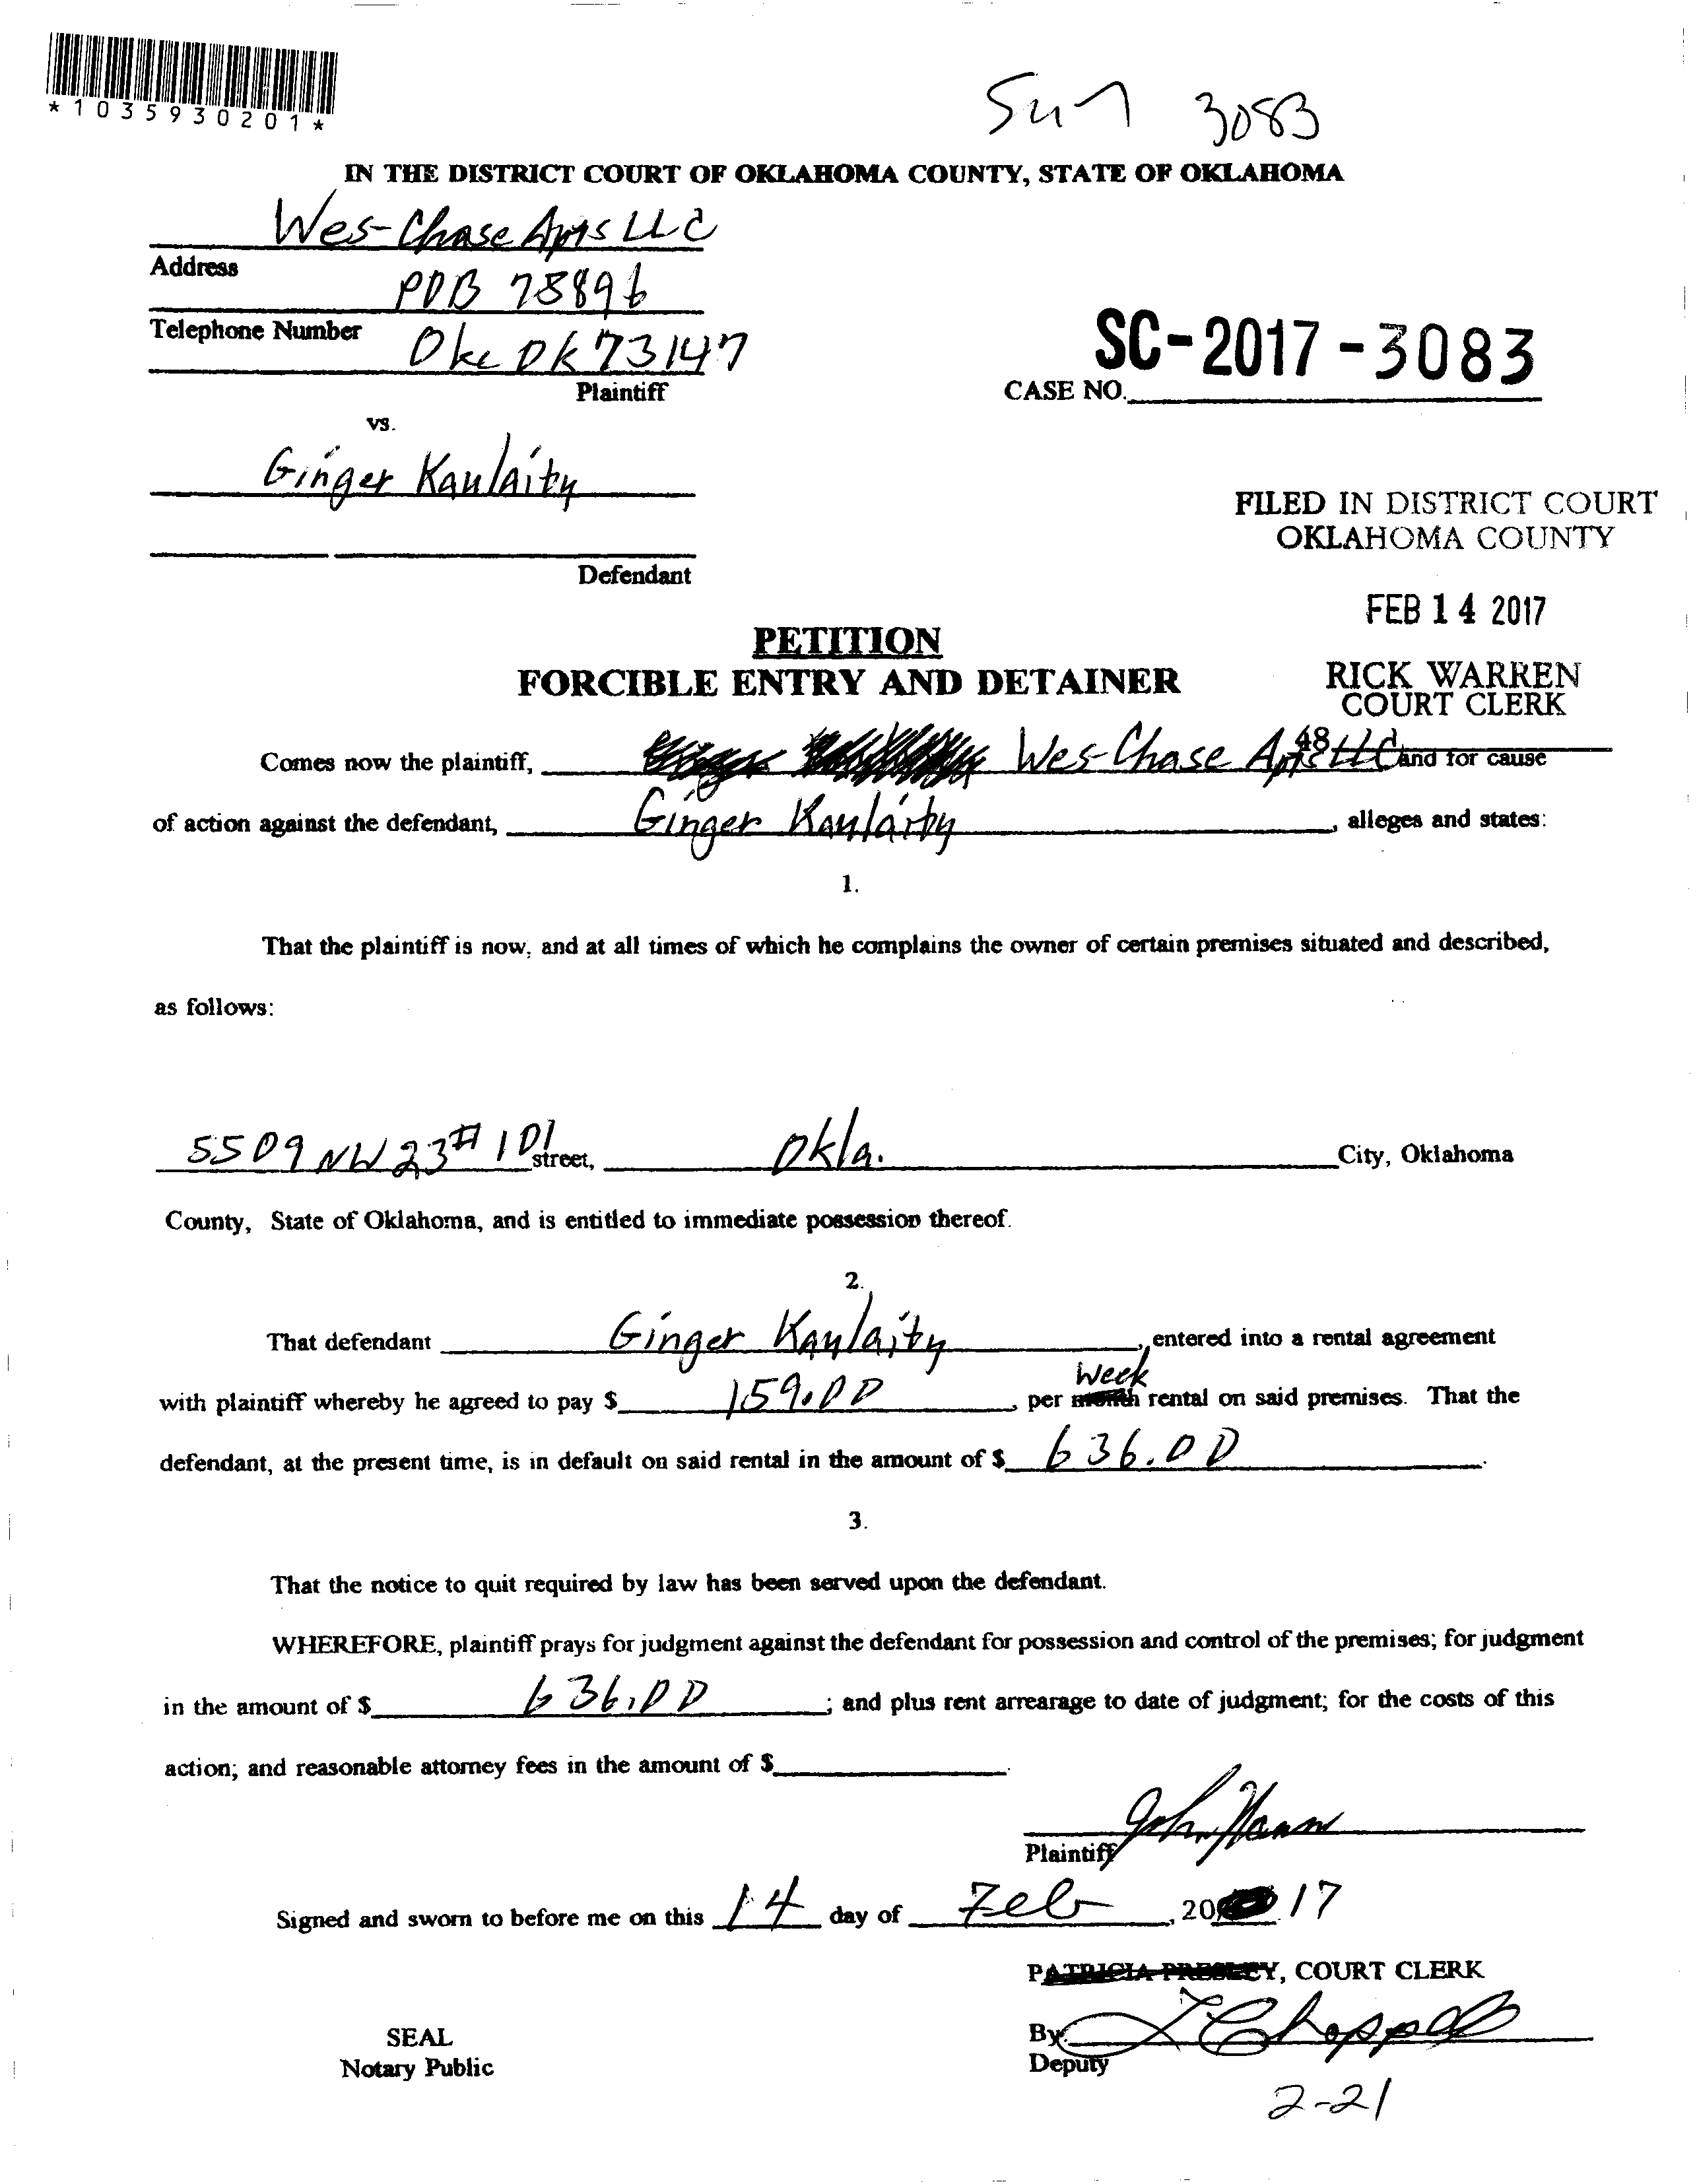 *1035930201*
3083
IN THE DISTRICT COURT OF OKLAHOMA COUNTY, STATE OF OKLAHOMA
Wes-Chase Apts LLC
Address
POB 75896
Telephone Number
Okc OK 73147
Plaintiff
SC-2017-3083
CASE NO.
vs.
Ginger Kaulaity
Defendant
FILED IN DISTRICT COURT
OKLAHOMA COUNTY
FEB 14 2017
RICK WARREN
COURT CLERK
48
PETITION
FORCIBLE ENTRY AND DETAINER
Comes now the plaintiff, Wes-Chase Apts LLC and for cause
of action against the defendant, Ginger Kaulaity, alleges and states:
1.
That the plaintiff is now, and at all times of which he complains the owner of certain premises situated and described,
as follows:
5509 NW 23 # 101 street, Okla. City, Oklahoma
County, State of Oklahoma, and is entitled to immediate possession thereof.
2.
That defendant Ginger Kaulaity, entered into a rental agreement
Week
with plaintiff whereby he agreed to pay $ 159.00, per month rental on said premises. That the
defendant, at the present time, is in default on said rental in the amount of $ 636.00.
3.
That the notice to quit required by law has been served upon the defendant.
WHEREFORE, plaintiff prays for judgment against the defendant for possession and control of the premises; for judgment
in the amount of $ 636.00; and plus rent arrearage to date of judgment; for the costs of this
action; and reasonable attorney fees in the amount of $
John
Plaintiff
Signed and sworn to before me on this 14 day of Feb, 20 17
PATRICIA PRESLEY, COURT CLERK
SEAL
Notary Public
By: Chappell
Deputy
2-21